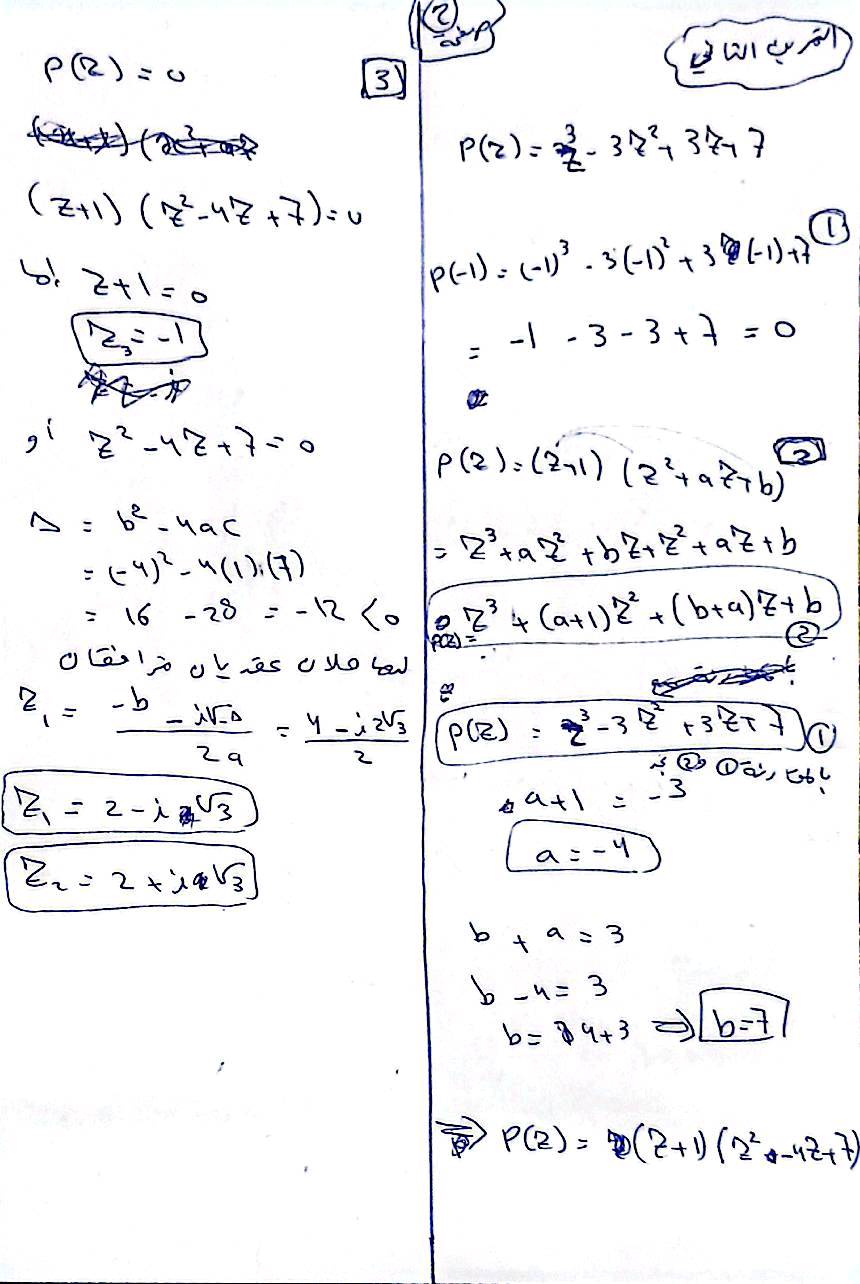 صفحة 2
التمرين الثاني
P(z) = z³ - 3z² + 3z + 7
①
P(-1) = (-1)³ - 3(-1)² + 3(-1) + 7
= -1 - 3 - 3 + 7 = 0
2
P(z) = (z+1) (z² + az + b)
= z³ + az² + bz + z² + az + b
P(z) = z³ + (a+1)z² + (b+a)z + b ②
P(z) = z³ - 3z² + 3z + 7 ①
① و ②
a+1 = -3
a = -4
b + a = 3
b - 4 = 3
b = 4+3 ⇒ b=7
⇒ P(z) = (z+1) (z² - 4z + 7)
3
P(z) = 0
(z+1) (z² - 4z + 7) = 0
إما z + 1 = 0
z₃ = -1
أو z² - 4z + 7 = 0
Δ = b² - 4ac
= (-4)² - 4(1).(7)
= 16 - 28 = -12 < 0
لها حلان عقديان مترافقان
z₁ = -b - i√-Δ / 2a = 4 - i2√3 / 2
z₁ = 2 - i√3
z₂ = 2 + i√3